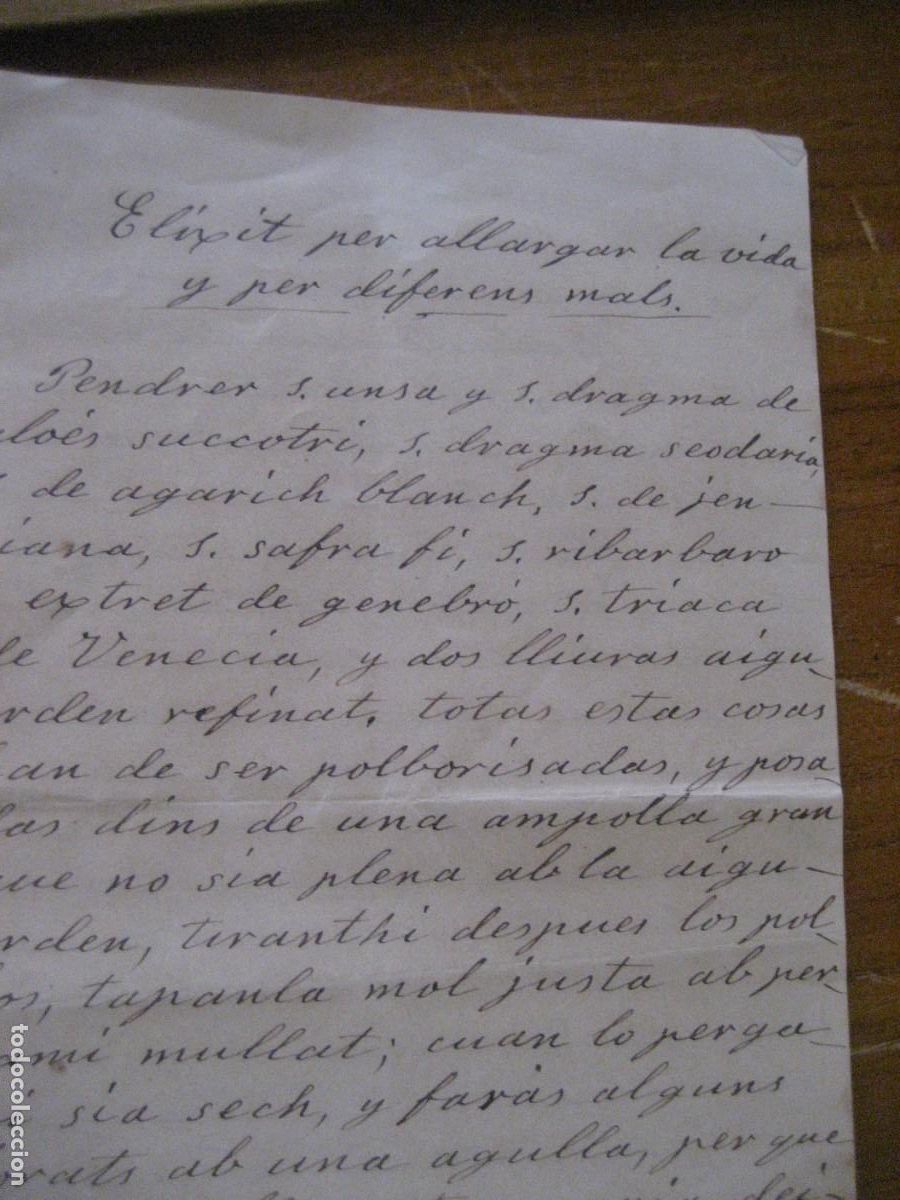 Elixit per allargar la vida
y per diferens mals.
Pendrer s. unsa y s. dragma de
aloés succotri, s. dragma seodaria,
de agarich blanch, s. de jen-
iana, s. safra fi, s. ribarbaro
extret de genebró, s. triaca
de Venecia, y dos lliuras aigu-
rden refinat. totas estas cosas
han de ser polborisadas, y posa-
las dins de una ampolla gran
que no sia plena ab la aigu-
rden, tiranthi despues los pol-
os, tapanla mol justa ab per-
ami mullat; cuan lo perga-
i sia sech, y farás alguns
orats ab una agulla, per que
todocoleccion
todocoleccion.net